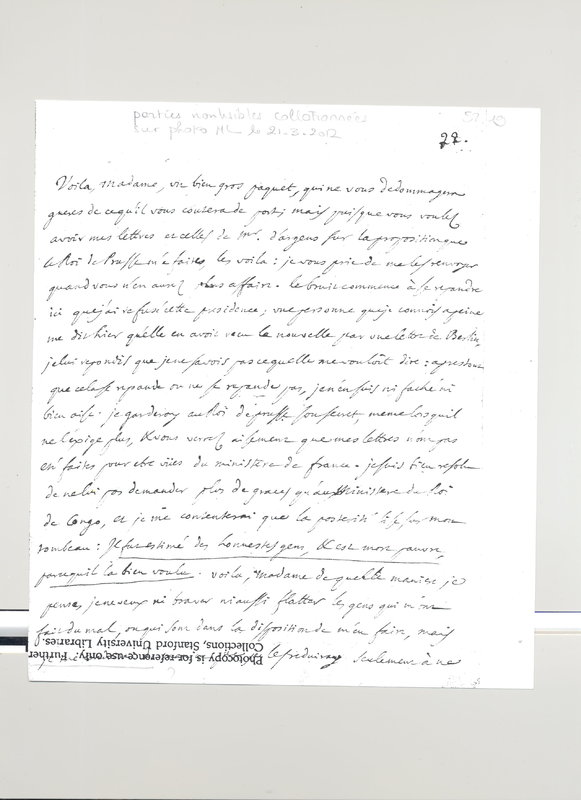 parties nonlisibles collationnées
sur photo HL le 21-3-2012
52/10
22.
Voila, madame, un bien gros paquet, qui ne vous dedommagera
gueres de ce qu'il vous coutera de port; mais puisque vous voulez
avoir mes lettres et celles de mr. d'argens sur la proposition que
le Roi de Prusse m'a faite, les voila: je vous prie de me les renvoyer
quand vous n'en aurez plus affaire. le bruit commence à se repandre
ici que j'ai refusé cette presidence; une personne que je connois a peine
me dit hier qu'elle en avoit recu la nouvelle par une lettre de Berlin,
je lui repondis que je ne savois pas ce qu'elle me vouloit dire: apres tout
que cela se repande ou ne se repande pas, je n'en suis ni faché ni
bien aise. je garderay au Roi de prusse son secret, meme lorsqu'il
ne l'exige plus, & vous verrez aisement que mes lettres n'ont pas
été faites pour etre vües du ministere de france. je suis bien resolu
de ne lui pas demander plus de graces qu'au Ministere du Roi
de Congo, et je me contenterai que la posterité lise sur mon
tombeau: Il fut estimé des honnestes gens, & est mort pauvre,
parcequ'il l'a bien voulu. voila, Madame de quelle maniere je
pense, je ne veux ni braver ni aussi flatter les gens qui m'ont
fait du mal, ou qui sont dans la disposition de m'en faire, mais
je les reduiray seulement à ne
Photocopy is for reference use only. Further
Collections, Stanford University Libraries.